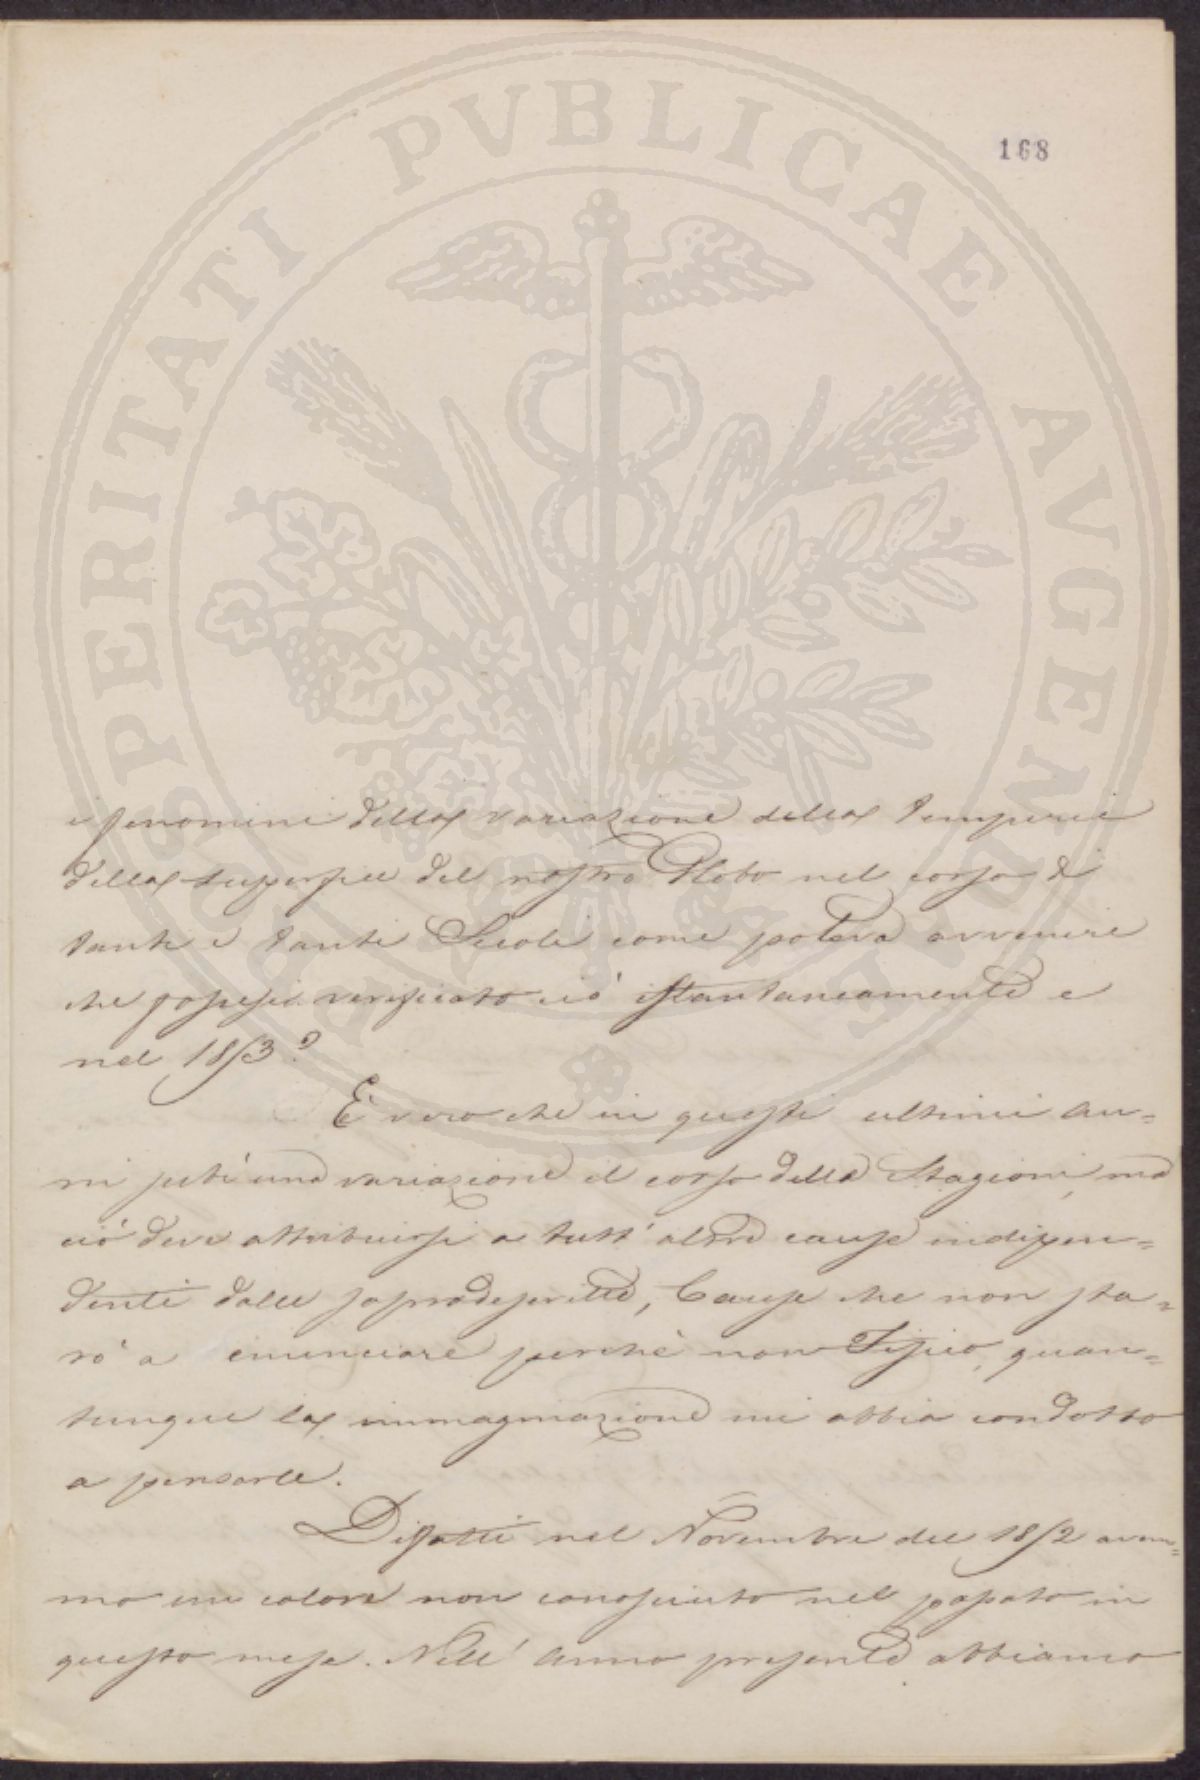 168
i fenomeni della variazione della temperie
della superficie del nostro Globo nel corso di
tanti e tanti Secoli come poteva avvenire
che fossesi verificato ciò istantaneamente e
nel 1853?
È vero che in questi ultimi an=
ni subì una variazione il corso delle Stagioni, ma
ciò deve attribuirsi a tutt'altre cause indipen=
denti dalle sopradescritte, Cause che non sta=
rò a enunciare perchè non Fisico, quan=
tunque la immaginazione mi abbia condotto
a pensarle.
Difatti nel Novembre del 1852 avem=
mo un calore non conosciuto nel passato in
questo mese. Nell'anno presente abbiamo
PROSPERITATI PVBLICAE AVGENDAE